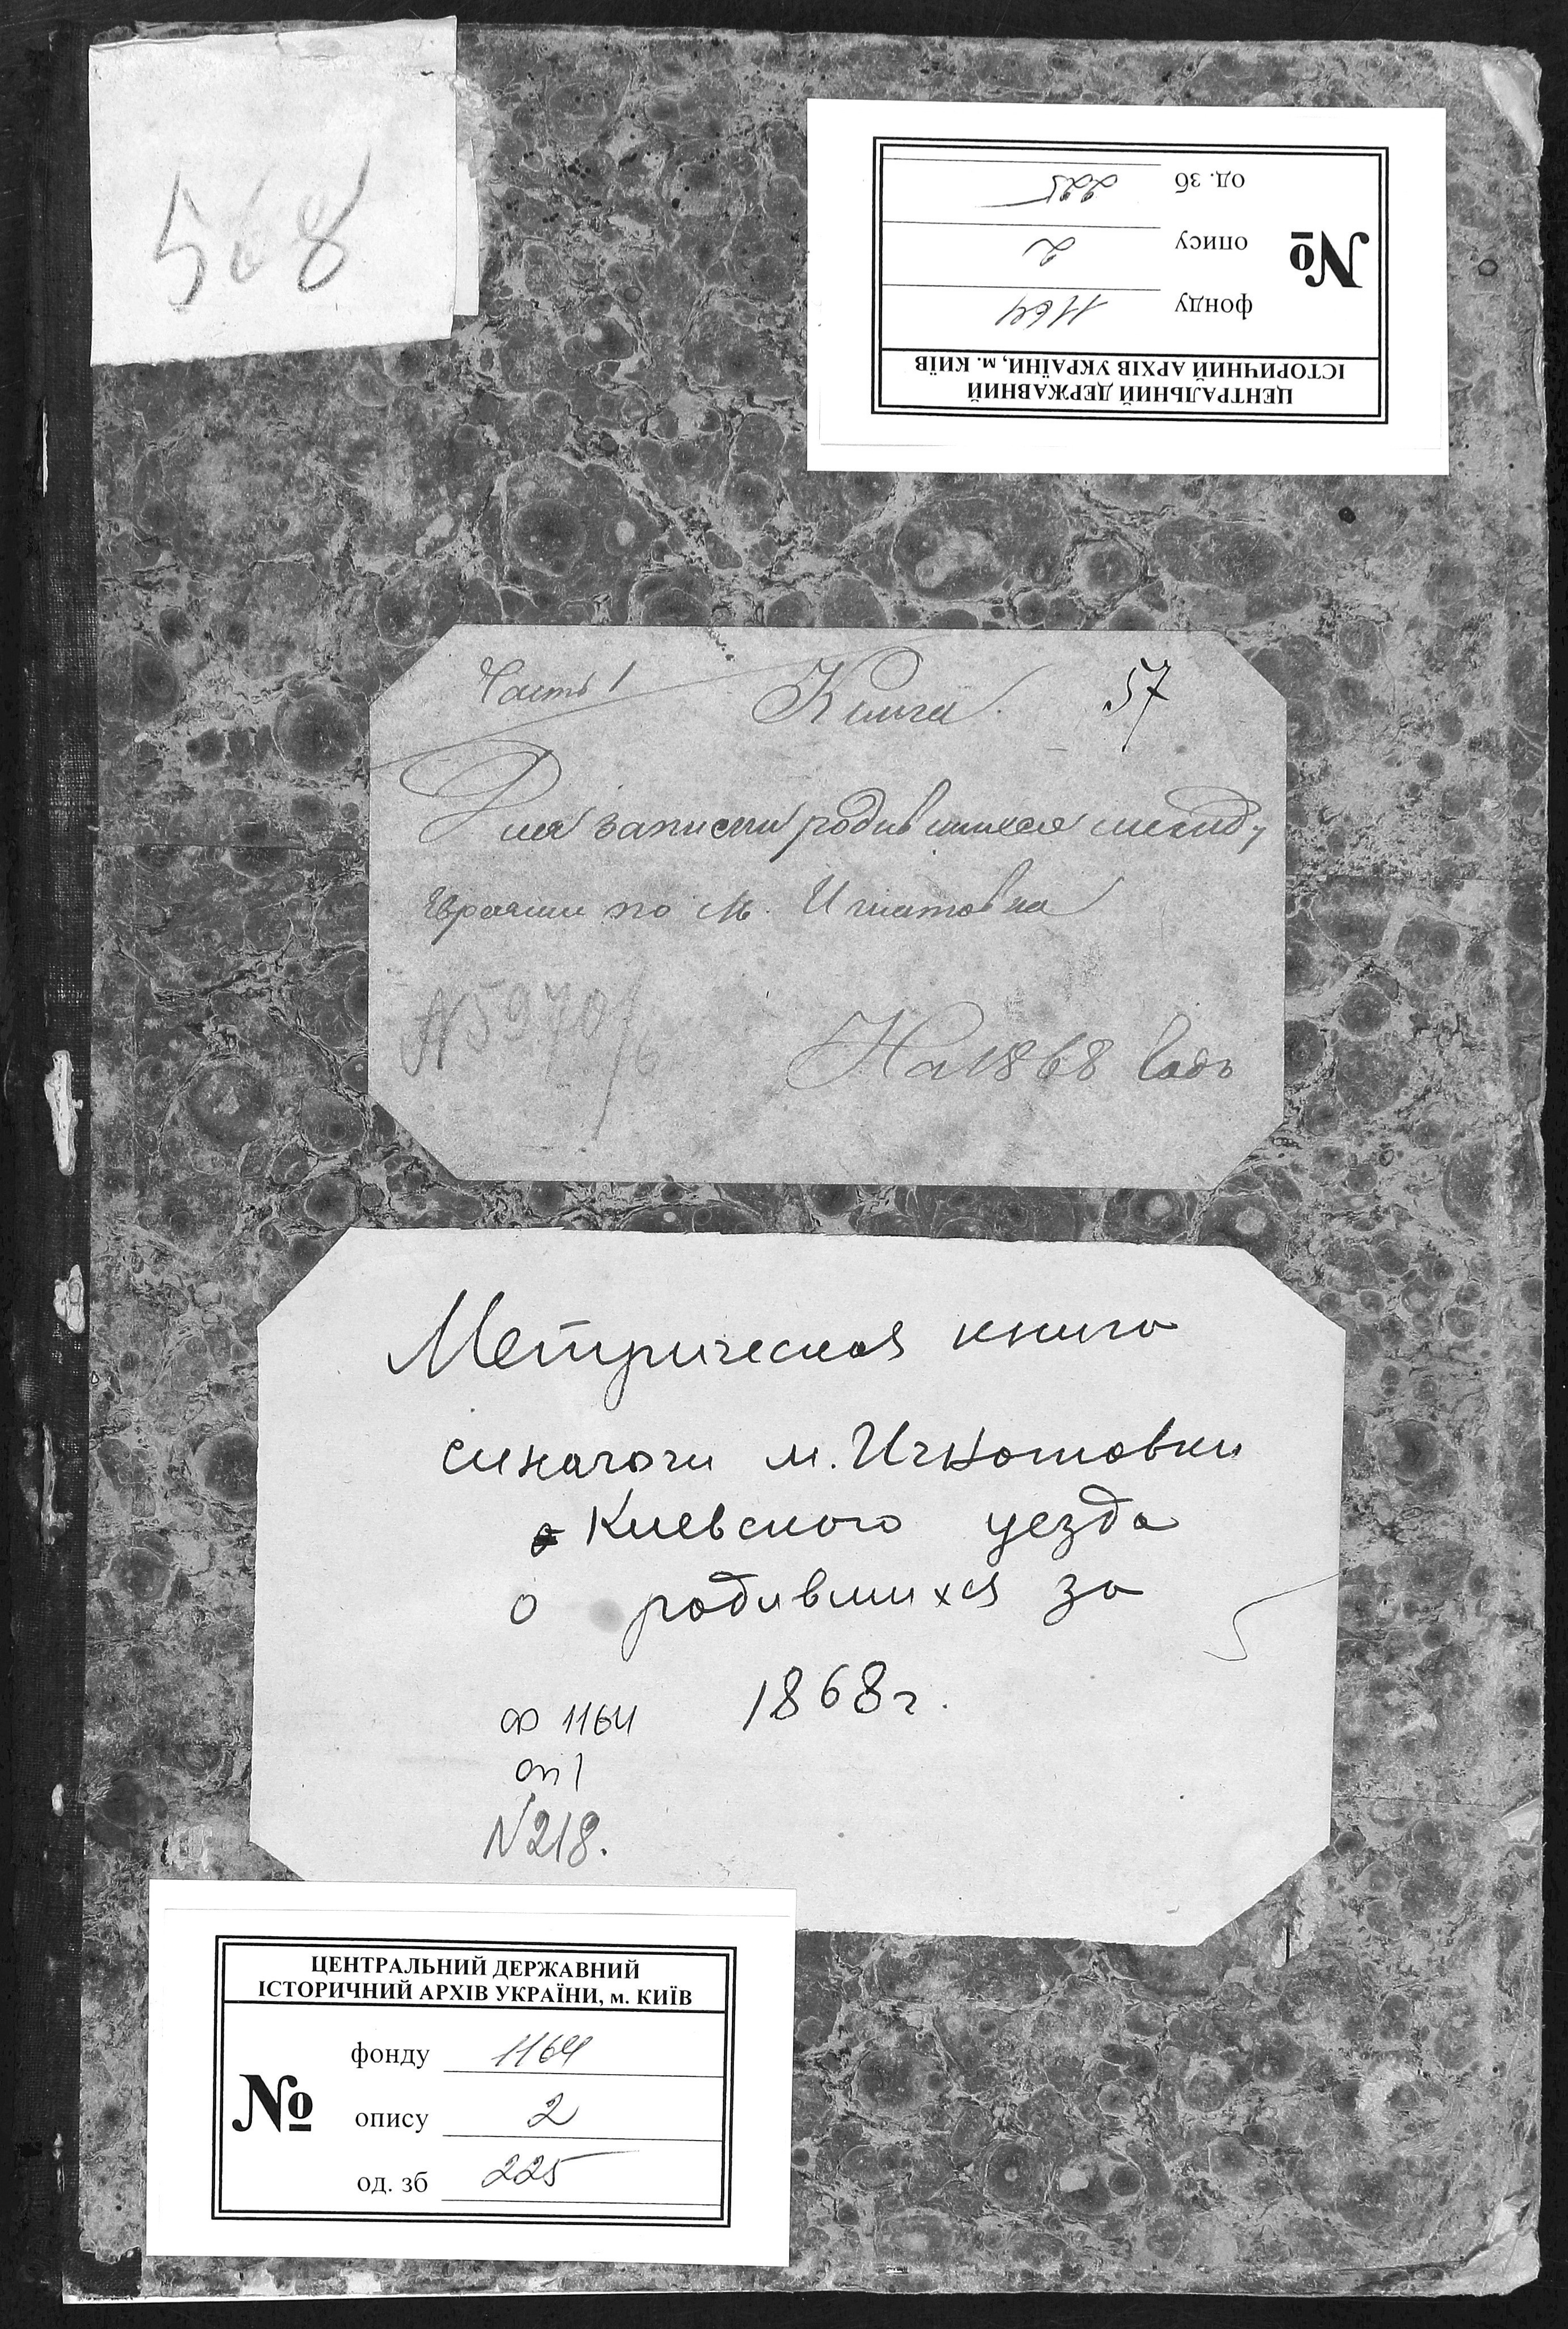 568
ЦЕНТРАЛЬНИЙ ДЕРЖАВНИЙ
ІСТОРИЧНИЙ АРХІВ УКРАЇНИ, м. КИЇВ
№
фонду 1164
опису 2
од. зб 225
Часть 1 Книга. 57
Для записки родившихся между
Евреями по м. Игнатовка
№5970/6
На 1868 Годъ
Метрическая книга
синагоги м. Игнатовки
Киевского уезда
о родившихся за
1868 г.
ф 1164
оп 1
N218.
ЦЕНТРАЛЬНИЙ ДЕРЖАВНИЙ
ІСТОРИЧНИЙ АРХІВ УКРАЇНИ, м. КИЇВ
№
фонду 1164
опису 2
од. зб 225